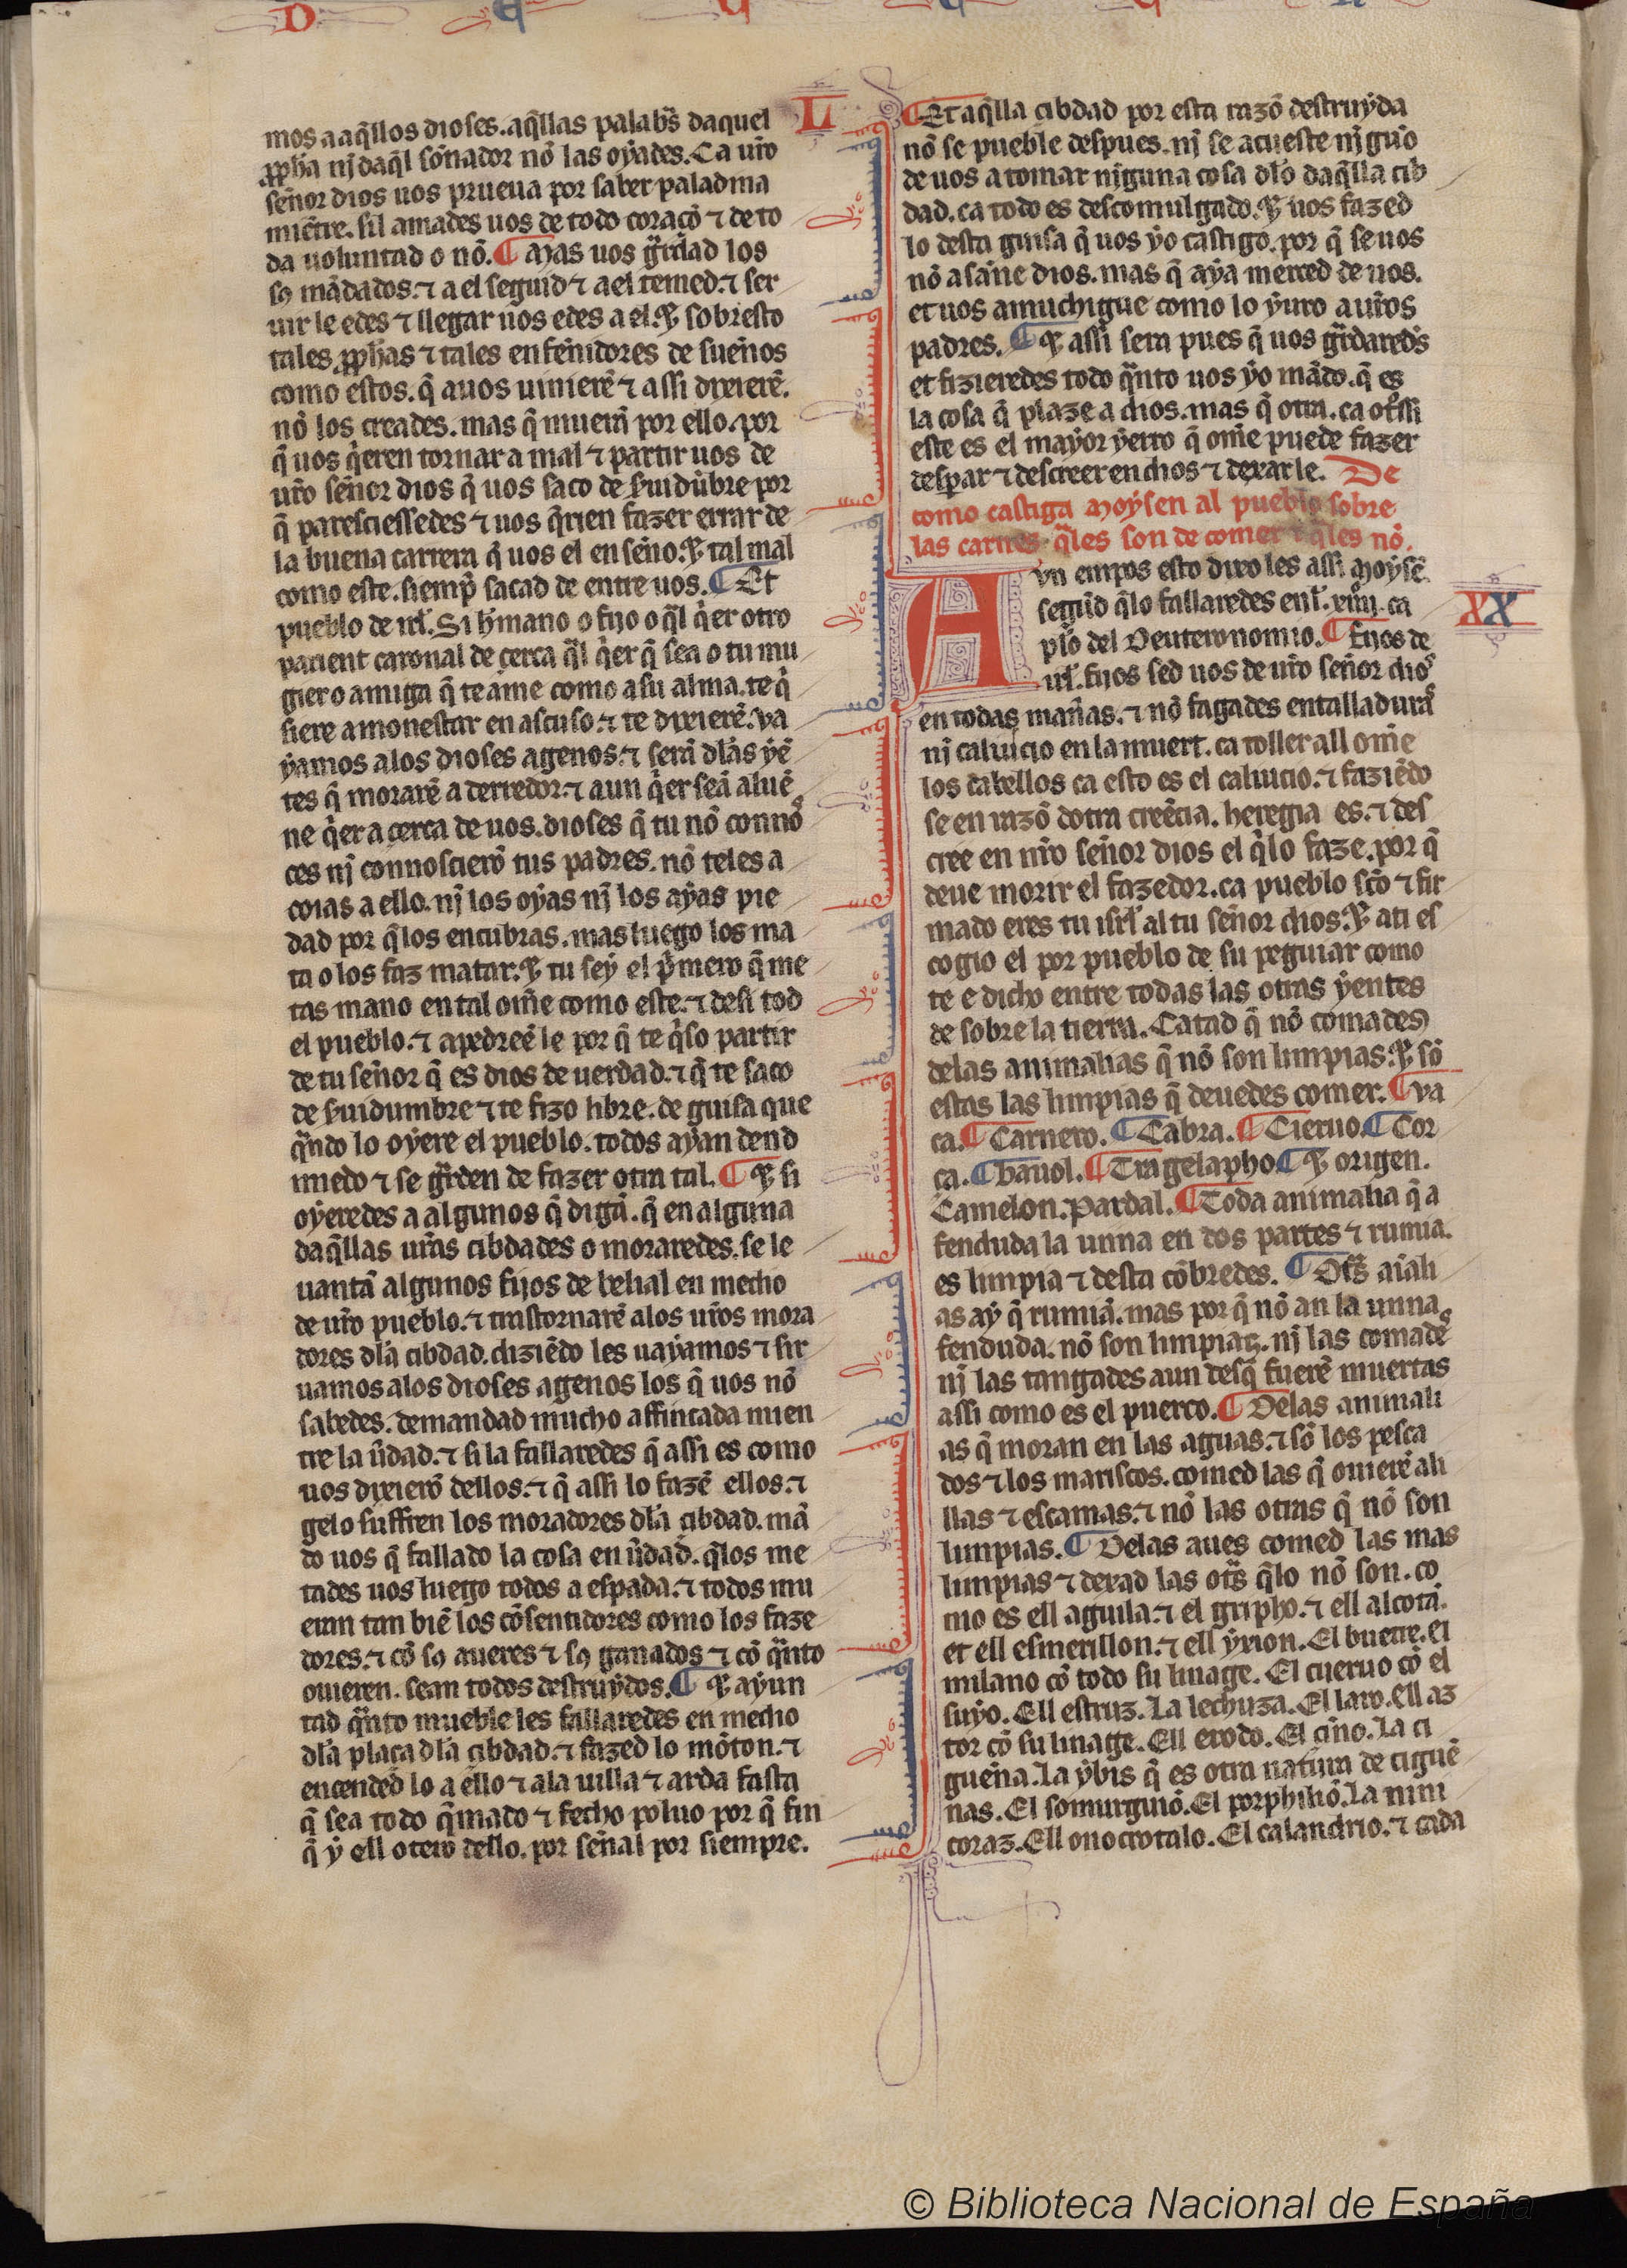 D
L
mos a aq̃llos dioses. aq̃llas palab̃s daquel
ꝓph̃a nj̃ daq̃l sõnador nõ las oyades. Ca ur̃o
señor dios uos prueua por saber paladina
miẽtre. sil amades uos de todo coraçõ ⁊ de to
da uoluntad o nõ. ¶ Mas uos gr̃dad los
sꝯ mãdados. ⁊ a el seguid ⁊ a el temed. ⁊ ser
uir le edes ⁊ llegar uos edes a el. ⁊ sobresto
tales ꝓph̃as ⁊ tales enfeñidores de sueños
como estos. q̃ auos uinierẽ ⁊ assi dixierẽ.
nõ los creades. mas q̃ muerã por ello. por
q̃ uos q̃eren tornar a mal ⁊ partir uos de
ur̃o señor dios q̃ uos saco de s̃uidũbre por
q̃ paresciessedes ⁊ uos q̃rien fazer errar de
la buena carrera q̃ uos el enseño. ⁊ tal mal
como este. siemp̃ sacad de entre uos. ¶ Et
pueblo de irl̃. Si h̃mano o fijo o q̃l q̃er otro
parient caronal de çerca q̃l q̃er q̃ sea o tu mu
gier o amiga q̃ te ame como a su alma. te q̃
siere amonestar en ascuso. ⁊ te dixierẽ. va
yamos alos dioses agenos. ⁊ serã dlãs yẽ
tes q̃ morarẽ a derredor. ⁊ aun q̃er seã aluẽ
ne q̃er a çerca de uos. dioses q̃ tu nõ connos
ces nj̃ connoscierõ tus padres. nõ te les a
coias a ello. nj̃ los oyas nj̃ los ayas pie
dad por q̃ los encubras. mas luego los ma
ta o los faz matar. ⁊ tu sey el p̃mero q̃ me
tas mano en tal om̃e como este. ⁊ desi tod
el pueblo. ⁊ apedreẽ le por q̃ te q̃so partir
de tu señor q̃ es dios de uerdad. ⁊ q̃ te saco
de s̃uidumbre ⁊ te fizo libre. de guisa que
q̃ndo lo oyere el pueblo. todos ayan dend
miedo ⁊ se gr̃den de fazer otra tal. ¶ ⁊ si
oyeredes a algunos q̃ digã. q̃ en alguna
daq̃llas ur̃as cibdades o moraredes. se le
uantã algunos fijos de belial en medio
de ur̃o pueblo. ⁊ trastornarẽ alos ur̃os mora
dores dlã cibdad. diziẽdo les uayamos ⁊ sir
uamos alos dioses agenos los q̃ uos nõ
sabedes. demandad mucho affincada mien
tre la ũdad. ⁊ si la fallaredes q̃ assi es como
uos dixierõ dellos. ⁊ q̃ assi lo fazẽ ellos. ⁊
gelo suffren los moradores dlã cibdad. mã
do uos q̃ fallado la cosa en ũdad. q̃ los me
tades uos luego todos a espada. ⁊ todos mu
eran tan biẽ los cõsentidores como los faze
dores. ⁊ cõ sꝯ aueres ⁊ sꝯ ganados ⁊ cõ q̃nto
ouieren. sean todos destruydos. ¶ ⁊ ayun
tad q̃nto mueble les fallaredes en medio
dlã plaça dlã cibdad. ⁊ fazed lo mõton. ⁊
encended lo a ello ⁊ ala uilla ⁊ arda fasta
q̃ sea todo q̃mado ⁊ fecho poluo por q̃ fin
q̃ y ell otero dello. por señal por siempre.
¶ Et aq̃lla cibdad por esta razõ destruyda
nõ se pueble despues. nj̃ se acueste nj̃guño
de uos a tomar nj̃guna cosa dlo daq̃lla cib
dad. ca todo es descomulgado. ⁊ uos fazed
lo desta guisa q̃ uos yo castigo. por q̃ se uos
nõ asañe dios. mas q̃ aya merced de uos.
et uos amuchigue como lo yuro a ur̃os
padres. ¶ ⁊ assi sera pues q̃ uos gr̃dareds
et fizieredes todo q̃nto uos yo mãdo. q̃ es
la cosa q̃ plaze a dios. mas q̃ otra. ca otrssi
este es el mayor yerro q̃ om̃e puede fazer
despar ⁊ descreer en dios ⁊ dexar le. De
como castiga Moysen al pueblo sobre
las carnes q̃les son de comer ⁊ q̃les nõ.
Avn empos esto dixo les assi Moysẽ.
segũd q̃lo fallaredes enl̃. xiiij. ca
XX
pl̃o del Deuteronomio. ¶ Fijos de
irl̃. fijos sed uos de ur̃o señor dios
en todas mañas. ⁊ nõ fagades entalladuras
nj̃ caluicio en la muert. ca toller all om̃e
los cabellos ca esto es el caluicio. ⁊ faziẽdo
se en razõ dotra creẽcia. heregia es. ⁊ des
cree en nr̃o señor dios el q̃lo faze. por q̃
deue morir el fazedor. ca pueblo sc̃o ⁊ fir
mado eres tu isrl̃ al tu señor dios. ⁊ ati es
cogio el por pueblo de su peguiar como
te e dicho entre todas las otras yentes
de sobre la tierra. Catad q̃ nõ comades
delas animalias q̃ nõ son limpias. ⁊ sõ
estas las limpias q̃ deuedes comer. ¶ va
ca. ¶ Carnero. ¶ Cabra. ¶ Cieruo. ¶ Cor
ça. ¶ bauol. ¶ Tragelapho. ¶ ⁊ origen.
Camelon. Pardal. ¶ Toda animalia q̃ a
fenduda la unna en dos partes ⁊ rumia.
es limpia ⁊ desta cõbredes. ¶ Otr̃s aiali
as ay q̃ rumiã. mas por q̃ nõ an la unna
fenduda. nõ son limpias. nj̃ las comades
nj̃ las tangades aun desq̃ fuerẽ muertas
assi como es el puerco. ¶ Delas animali
as q̃ moran en las aguas. ⁊ sõ los pesca
dos ⁊ los mariscos. comed las q̃ ouierẽ ali
llas ⁊ escamas. ⁊ nõ las otras q̃ nõ son
limpias. ¶ Delas aues comed las mas
limpias ⁊ dexad las otr̃s q̃lo nõ son. co
mo es ell aguila. ⁊ el gripho. ⁊ ell alcotã.
et ell esmerillon. ⁊ ell yxion. El buetre. el
milano cõ todo su linage. El cueruo cõ el
suyo. Ell estruz. La lechuza. El laro. ell az
tor cõ su linage. Ell erodo. El cino. La ci
gueña. La ybis q̃ es otra natura de cigueñ
nas. El somurguiõ. El porphiriõ. La niti
coraz. Ell onocrotalo. El calandrio. ⁊ cada
© Biblioteca Nacional de España